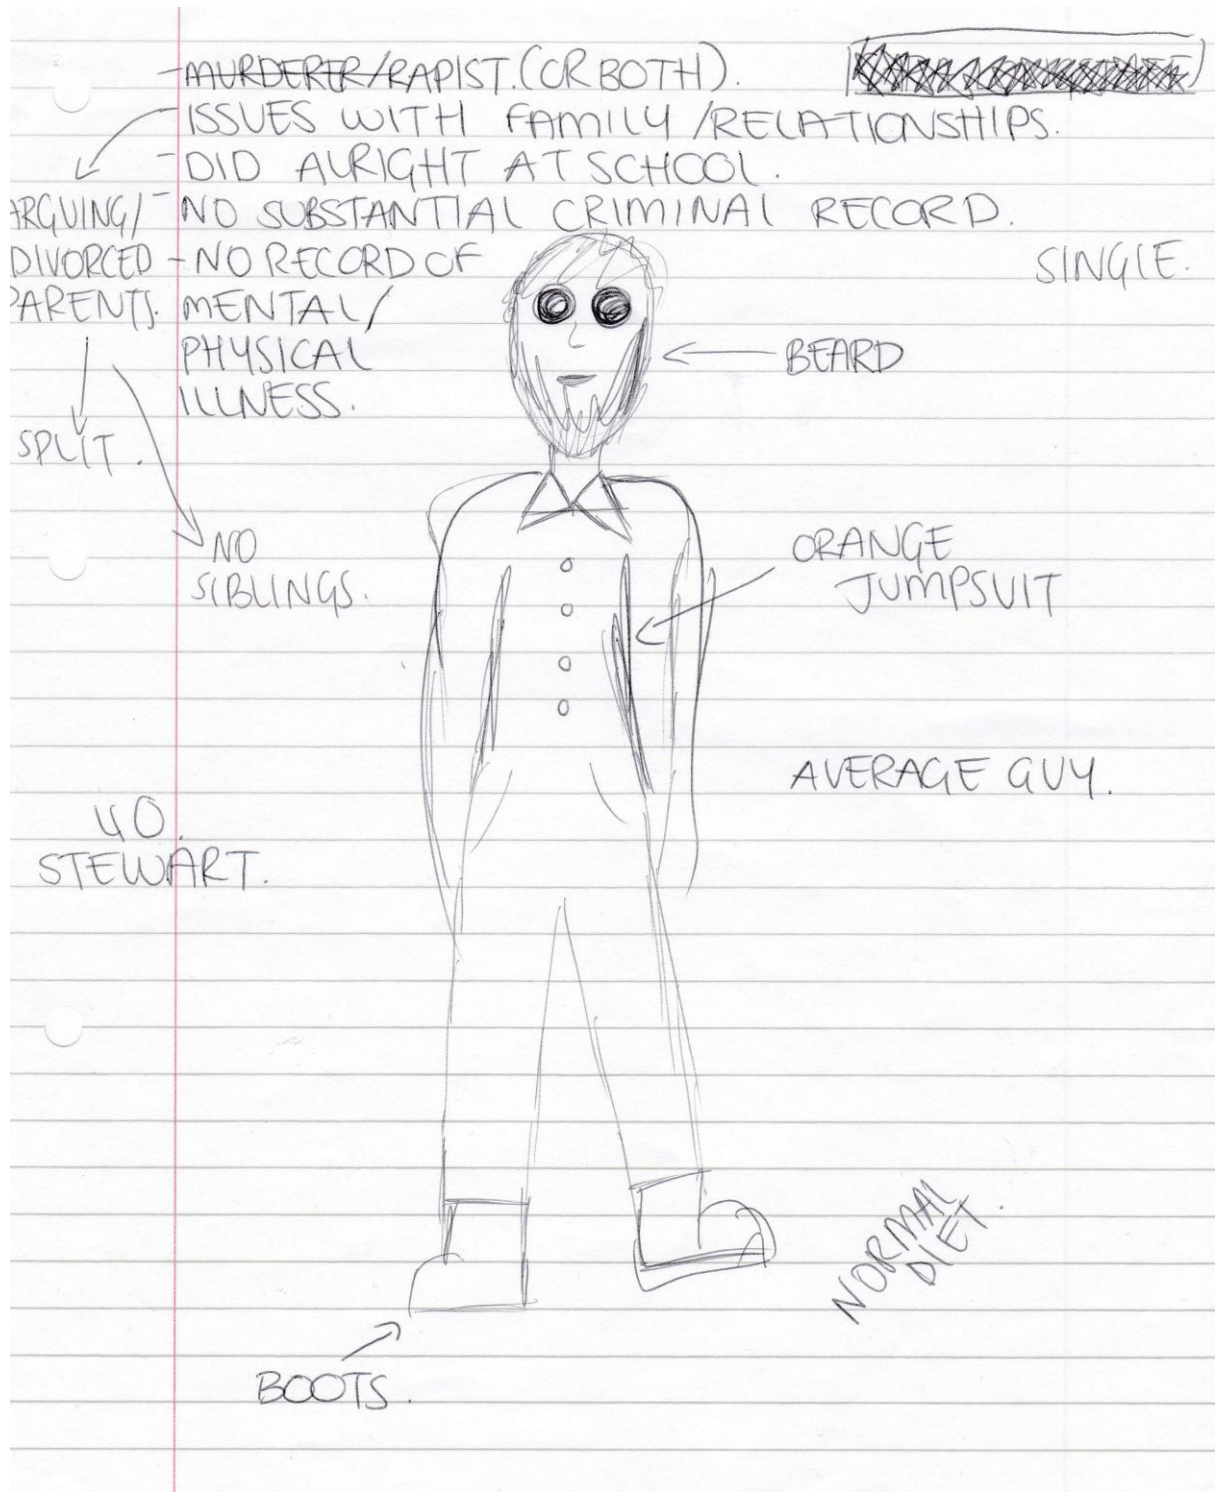 -MURDERER/RAPIST.(OR BOTH).
ISSUES WITH FAMILY/RELATIONSHIPS.
-DID ALRIGHT AT SCHOOL.
-NO SUBSTANTIAL CRIMINAL RECORD.
-NO RECORD OF
MENTAL/
PHYSICAL
ILLNESS.
ARGUING/
DIVORCED
PARENTS.
SPLIT.
NO
SIBLINGS.
SINGLE.
BEARD
ORANGE
JUMPSUIT
AVERAGE GUY.
40.
STEWART.
NORMAL
DIET.
BOOTS.